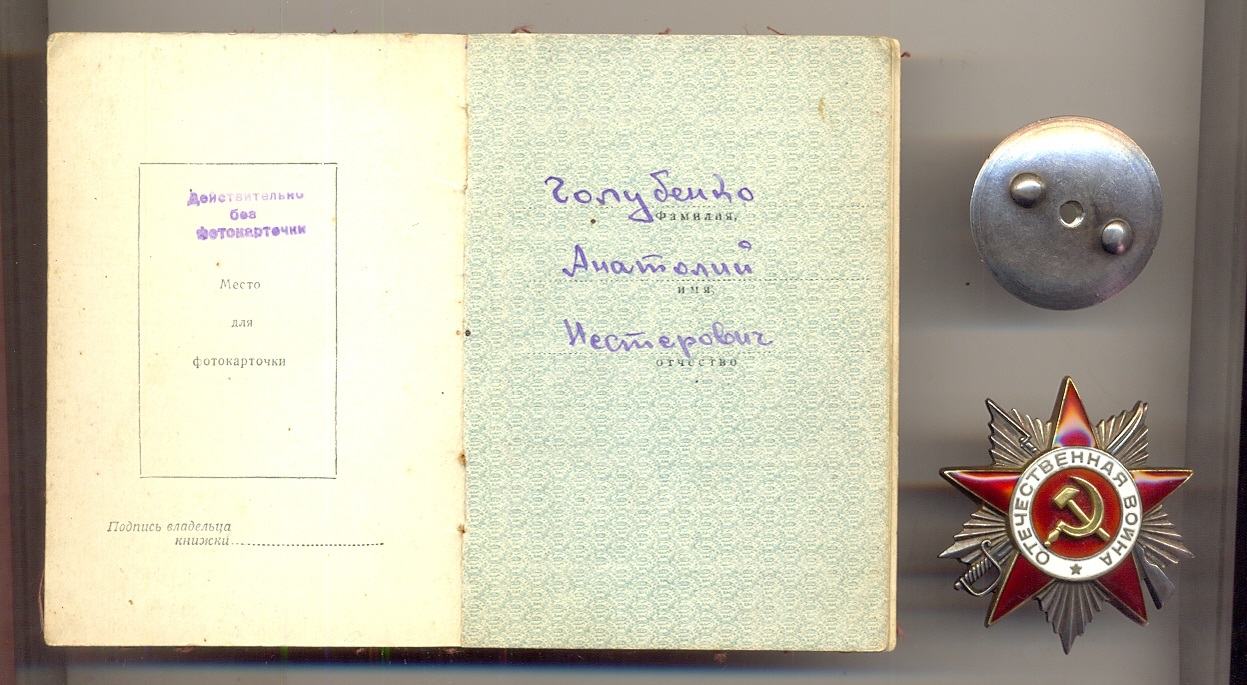 Действительно
без
фотокарточки
Место
для
фотокарточки
Подпись владельца
книжки
Голубенко
Фамилия,
Анатолий
имя,
Нестерович
отчество
ОТЕЧЕСТВЕННАЯ ВОЙНА